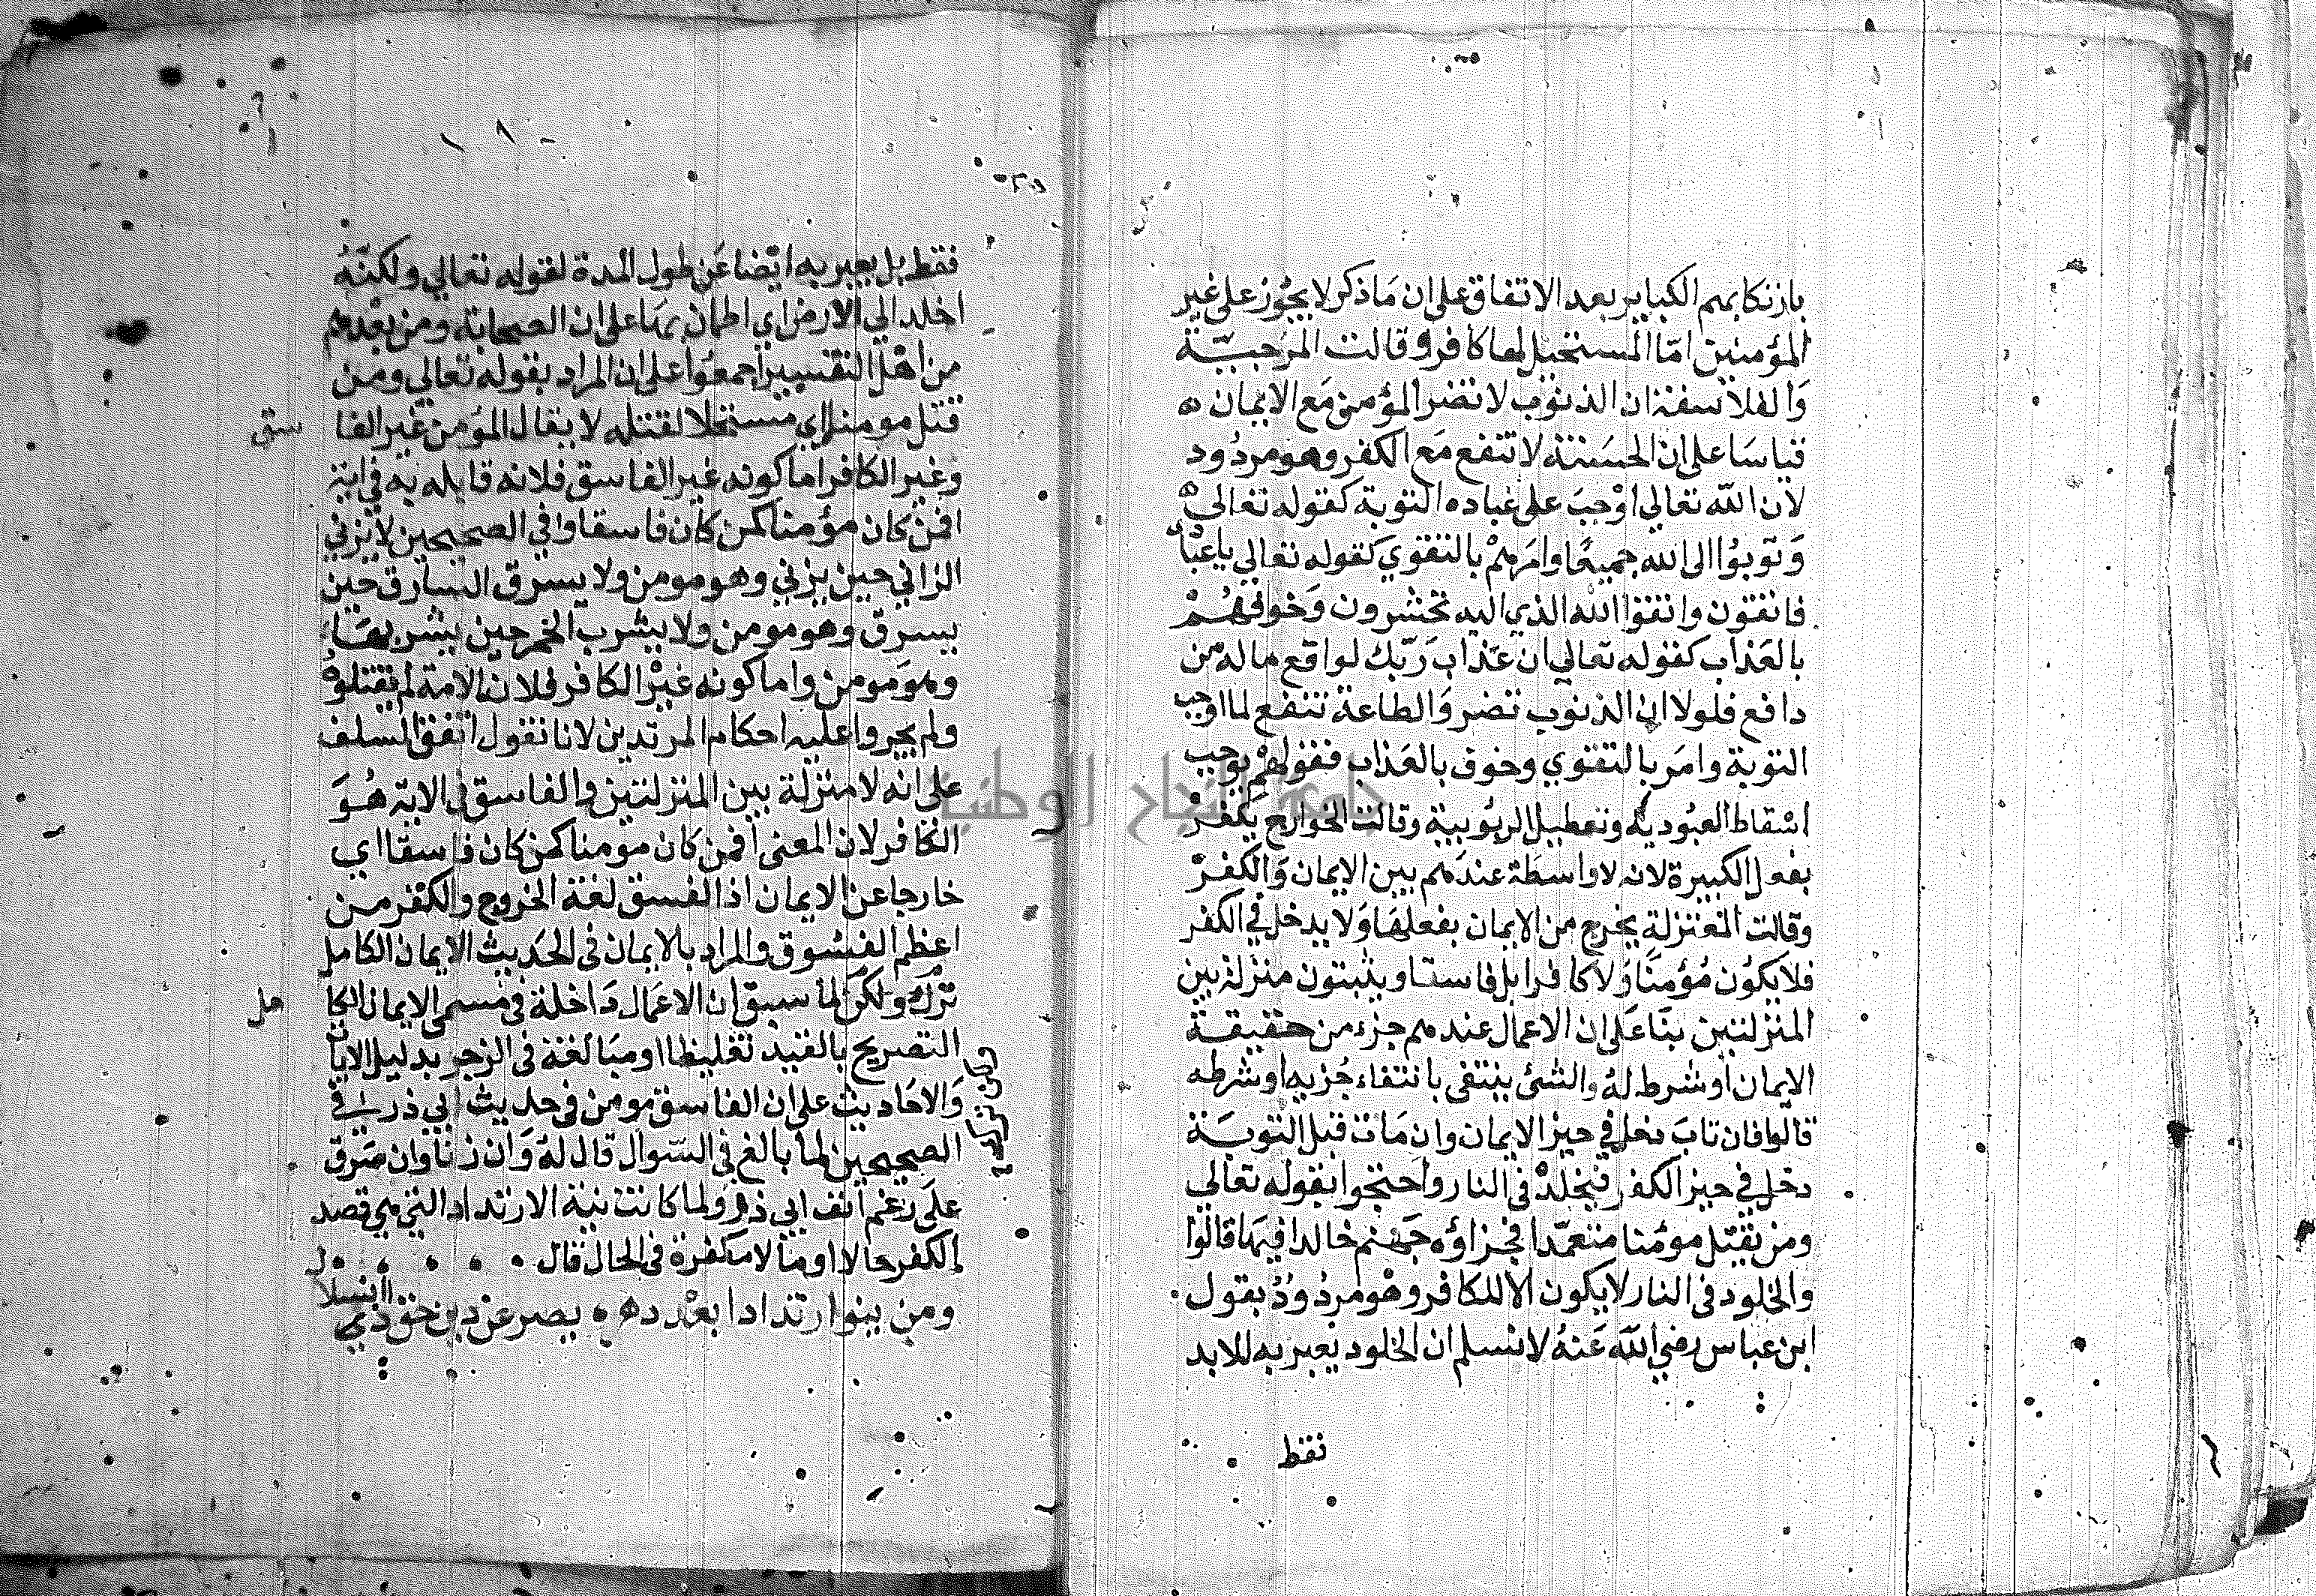 بارتكابهم الكباير بعد الاتفاق على ان ما ذكر لا يجوز على غير
المؤمنين اما المستحيل لها كافر وقالت المرجبية
والفلاسفة ان الذنوب لا تضر المؤمن مع الايمان ه
قياسا على ان الحسنة لا تنفع مع الكفر وهو مردود
لان الله تعالي اوجب على عباده التوبة كقوله تعالي
وتوبوا الى الله جميعا وامرهم بالتقوي كقوله تعالي يا عباد
فاتقون واتقوا الله الذي اليه تحشرون وخوفهم
بالعذاب كقوله تعالي ان عذاب ربك لواقع ماله من
دافع فلولا ان الذنوب تضر والطاعة تنفع لما اوجب
التوبة وامر بالتقوي وخوف بالعذاب فقولهم يوجب
اسقاط العبودية وتعطيل الربوبية وقالت الخوارج يكفر
بفعل الكبيرة لانه لا واسطة عندهم بين الايمان والكفر
وقالت المعتزلة يخرج من الايمان بفعلها ولا يدخل في الكفر
فلا يكون مؤمنا ولا كافرا بل فاسقا ويثبتون منزلة بين
المنزلتين بنا على ان الاعمال عندهم جزء من حقيقة
الايمان او شرط له والشئ ينتفى بانتفاء جزيه او شرطه
قالوا فان تاب دخل في حيز الايمان وان مات قبل التوبة
دخل في حيز الكفر فيخلد في النار واحتجوا بقوله تعالي
ومن يقتل مؤمنا متعمدا فجزاؤه جهنم خالدا فيها قالوا
والخلود في النار لا يكون الا للكافر وهو مردود بقول
ابن عباس رضي الله عنه لا نسلم ان الخلود يعبر به للابد
فقط
فقط بل يعبر به ايضا عن طول المدة لقوله تعالي ولكنه
اخلد الي الارض اي اطمان بها على ان الصحابة ومن بعدهم
من اهل التفسير اجمعوا على ان المراد بقوله تعالي ومن
قتل مومنا اي مستحلا لقتله لا يقال المؤمن غير الفا سق
وغير الكافر اما كونه غير الفاسق فلانه قابله به في اية
افمن كان مؤمنا كمن كان فاسقا وفي الصحيحين لا يزني
الزاني حين يزني وهو مومن ولا يسرق السارق حين
يسرق وهو مومن ولا يشرب الخمر حين يشربها
وهو مومن واما كونه غير الكافر فلان الامة لم يقتلوه
ولم يجروا عليه احكام المرتدين لانا نقول اتفق السلف
على انه لا منزلة بين المنزلتين والفاسق في الاية هو
الكافر لان المعنى افمن كان مومنا كمن كان فاسقا اي
خارجا عن الايمان اذ الفسق لغة الخروج والكفر من
اعظم الفسوق والمراد بالايمان في الحديث الايمان الكامل
ترك ولكن لما سبق ان الاعمال داخلة في مسمى الايمان الكا مل
التصريح بالقيد تغليظا ومبالغة في الزجر بدليل الايات
والاحاديث على ان الفاسق مومن في حديث ابي ذر في
الصحيحين لما بالغ في السوال قال له وان زنا وان سرق
على رغم انف ابي ذر ولما كانت نية الارتداد التي هي قصد
الكفر حالا او مالا مكفرة في الحال قال
ومن ينوا ارتدادا بعد دهر يصر عن دين حق ذي انسلا ل
جامعة النجاح الوطنية